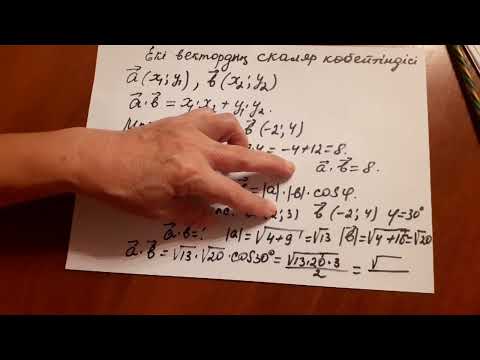 Екі вектордың скаляр көбейтіндісі
a⃗(x₁; y₁), b⃗(x₂; y₂)
a⃗·b⃗ = x₁·x₂ + y₁·y₂.
b⃗(-2; 4)
·4 = -4+12=8.
a⃗·b⃗ = 8.
= |a|·|b|·cosφ.
2; 3) b⃗(-2; 4) φ=30°
a⃗·b⃗=? |a|=√4+9=√13 |b⃗|=√4+16=√20
a⃗·b⃗ = √13·√20·cos30° = √13·20·3/2 = √